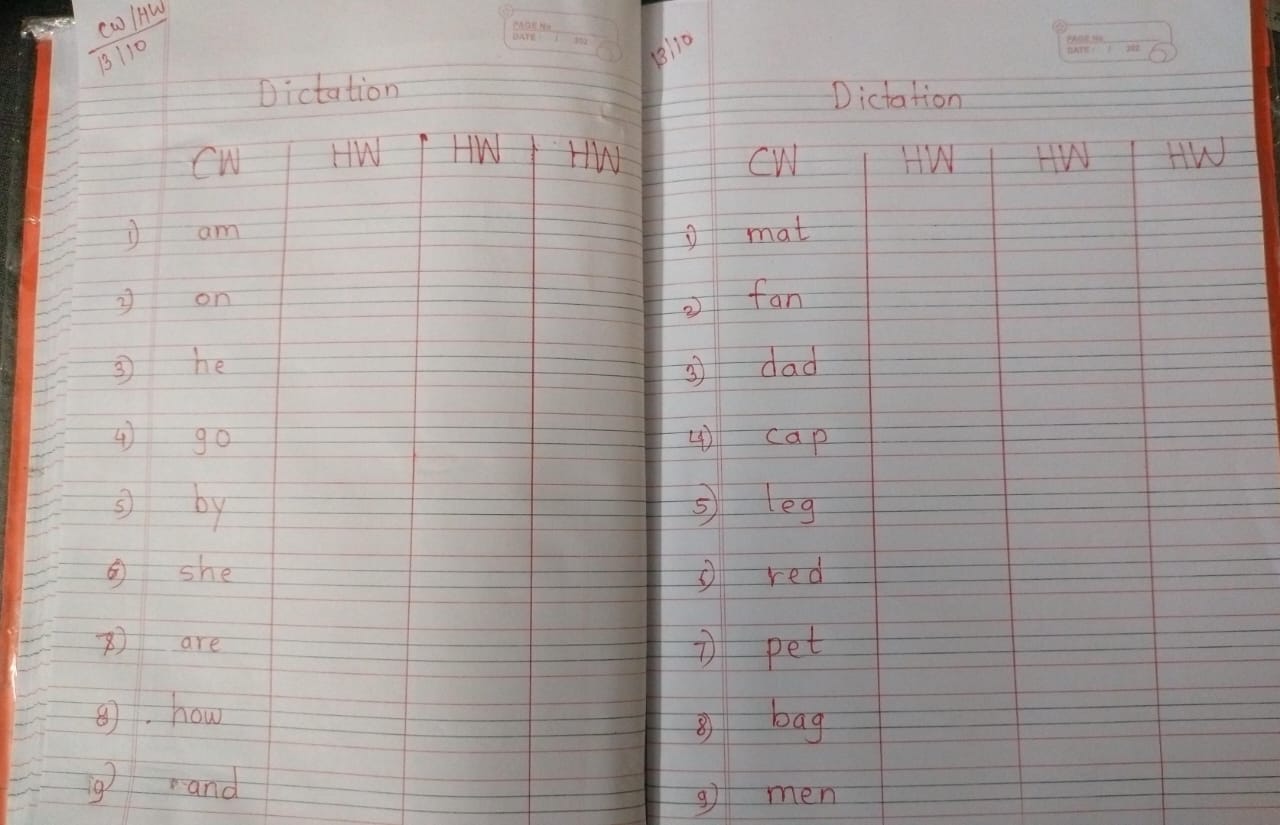 CW/HW
13/10
PAGE No.
DATE: / 202
Dictation
CW HW HW HW
1) am
2) on
3) he
4) go
5) by
6) she
7) are
8) how
9) and
13/10
PAGE No.
DATE: / 202
Dictation
CW HW HW HW
1) mat
2) fan
3) dad
4) cap
5) leg
6) red
7) pet
8) bag
9) men